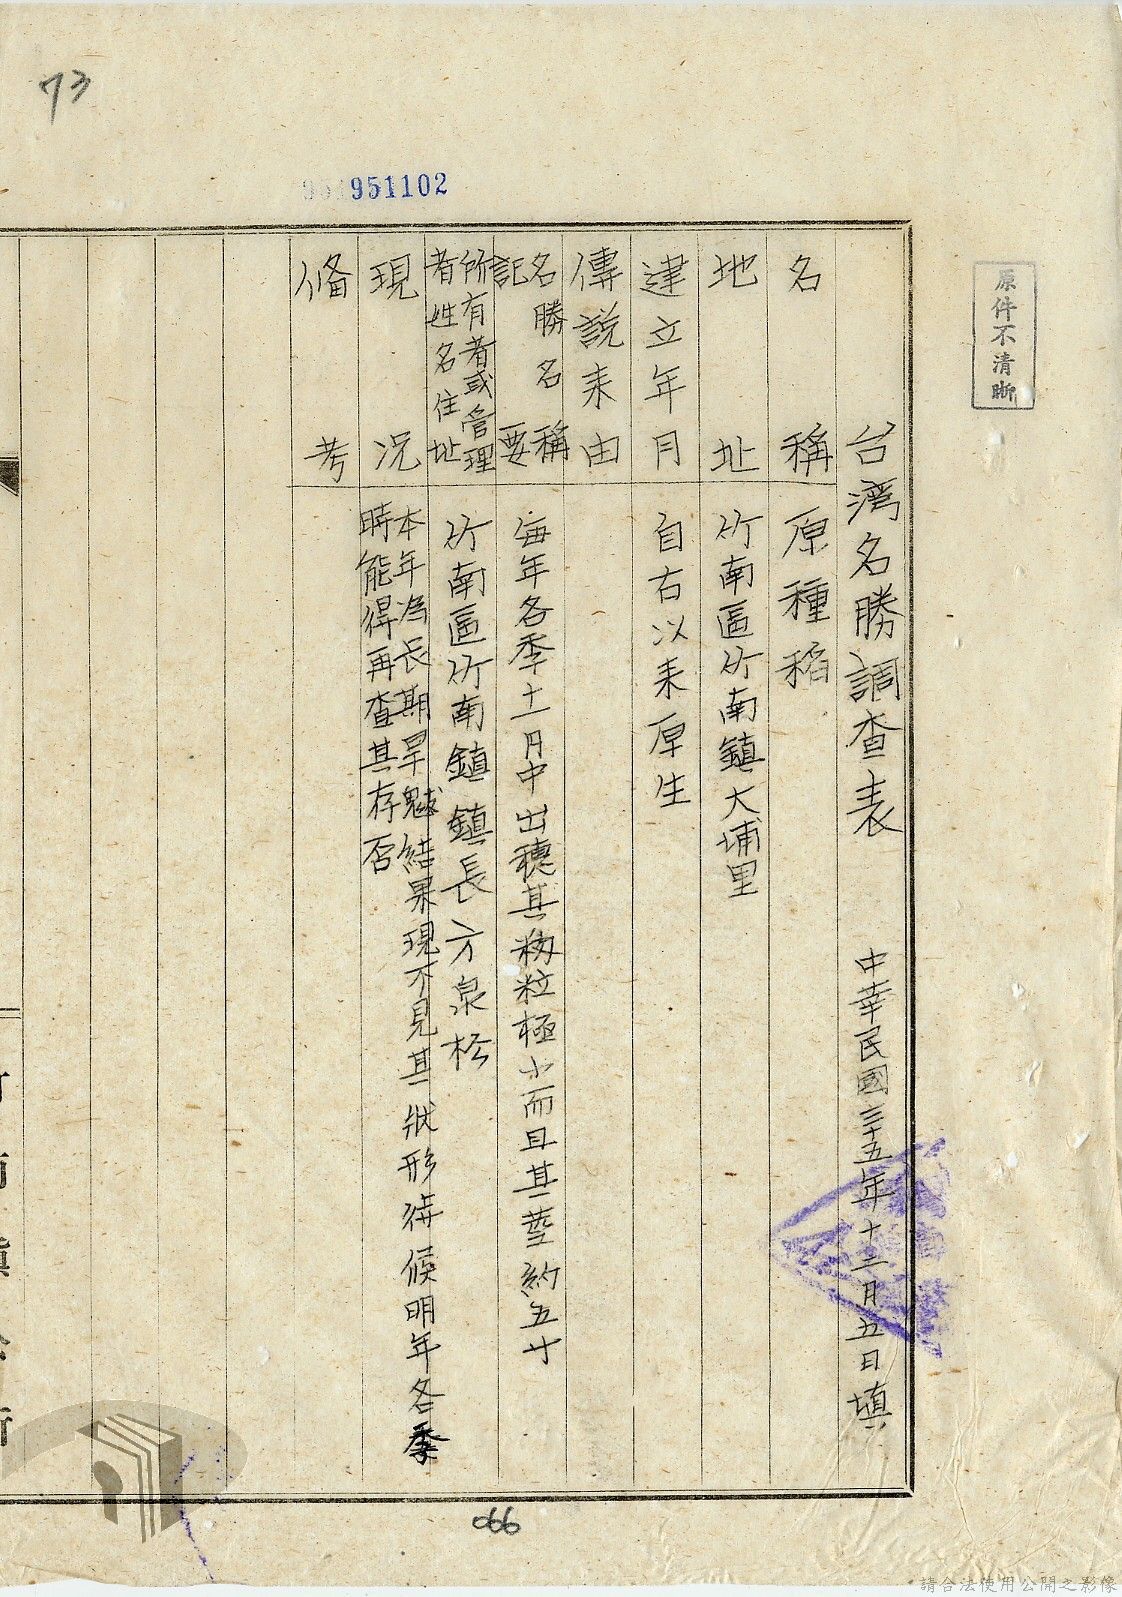 73
951102
原件不清晰
台湾名勝調查表　中華民國三十五年十二月五日填
名稱　原種稻
地址　竹南區竹南鎮大埔里
建立年月　自右以来原生
傳說来由
名勝名稱
記要
每年各季十一月中出穗其籾粒極小而且其莖約五寸
所有者或管理
者姓名住址
竹南區竹南鎮鎮長方泉松
現况
本年為長期旱魃結果現不見其狀形待候明年各季
時能得再查其存否
俻考
066
請合法使用公開之影像